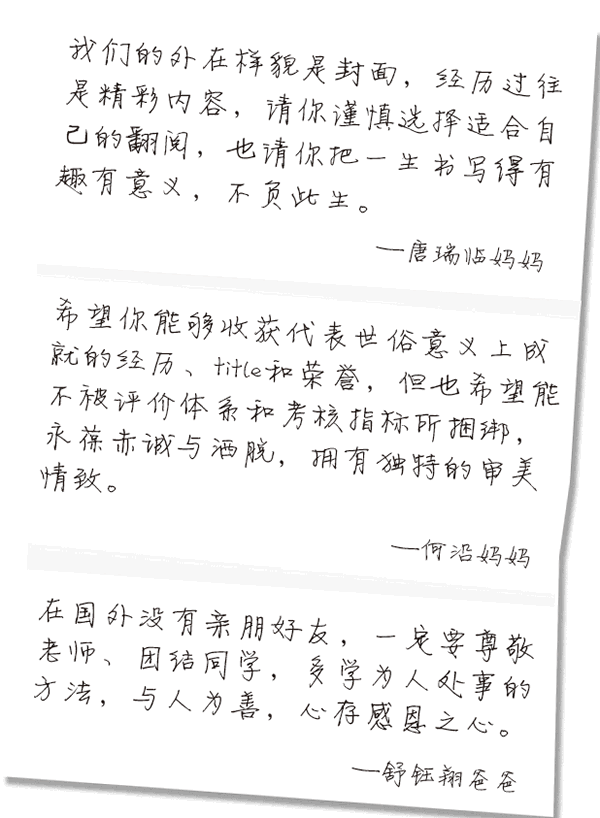 我们的外在样貌是封面，经历过往
是精彩内容，请你谨慎选择适合自
己的翻阅，也请你把一生书写得有
趣有意义，不负此生。
—唐瑞临妈妈
希望你能够收获代表世俗意义上成
就的经历、title和荣誉，但也希望能
不被评价体系和考核指标所捆绑，
永葆赤诚与洒脱，拥有独特的审美
情致。
—何沿妈妈
在国外没有亲朋好友，一定要尊敬
老师、团结同学，多学为人处事的
方法，与人为善，心存感恩之心。
—舒钰翔爸爸